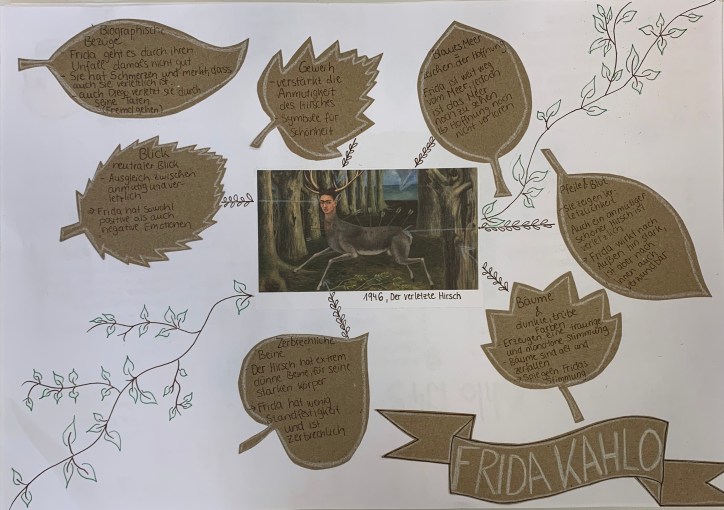 Biographische
Bezüge
Frida geht es durch ihren
Unfall damals nicht gut
- Sie hat Schmerzen und merkt, dass
auch sie verletzlich ist
- auch Diego verletzt sie durch
seine Taten
(Fremdgehen)
Geweih
- verstärkt die
Anmutigkeit
des Hirsches
- Symbole für
Schönheit
blaues Meer
=
Zeichen der Hoffnung
Frida ist weit weg
vom Meer, jedoch
ist das Meer
noch zu sehen
Hoffnung noch
nicht verloren
Blick
- neutraler Blick
- Ausgleich zwischen
anmutig und ver-
letzlich
→ Frida hat sowohl
positive als auch
negative Emotionen
Pfeile & Blut
- Sie zeigen Ver-
letzlichkeit
Auch ein anmutiger
schöner Hirsch ist
verletzlich
→ Frida wirkt nach
Außen hin stark,
ist aber nach
innen auch
verwundbar
1946, Der verletzte Hirsch
Bäume
&
dunkle, trübe
Farben
Erzeugen eine traurige
und monotone Stimmung
- Bäume sind alt und
zerfallen
→ Spiegeln Fridas
Stimmung
Zerbrechliche
Beine
Der Hirsch hat extrem
dünne Beine für seine
starken Körper
→ Frida hat wenig
Standfestigkeit
und ist
zerbrechlich
FRIDA KAHLO